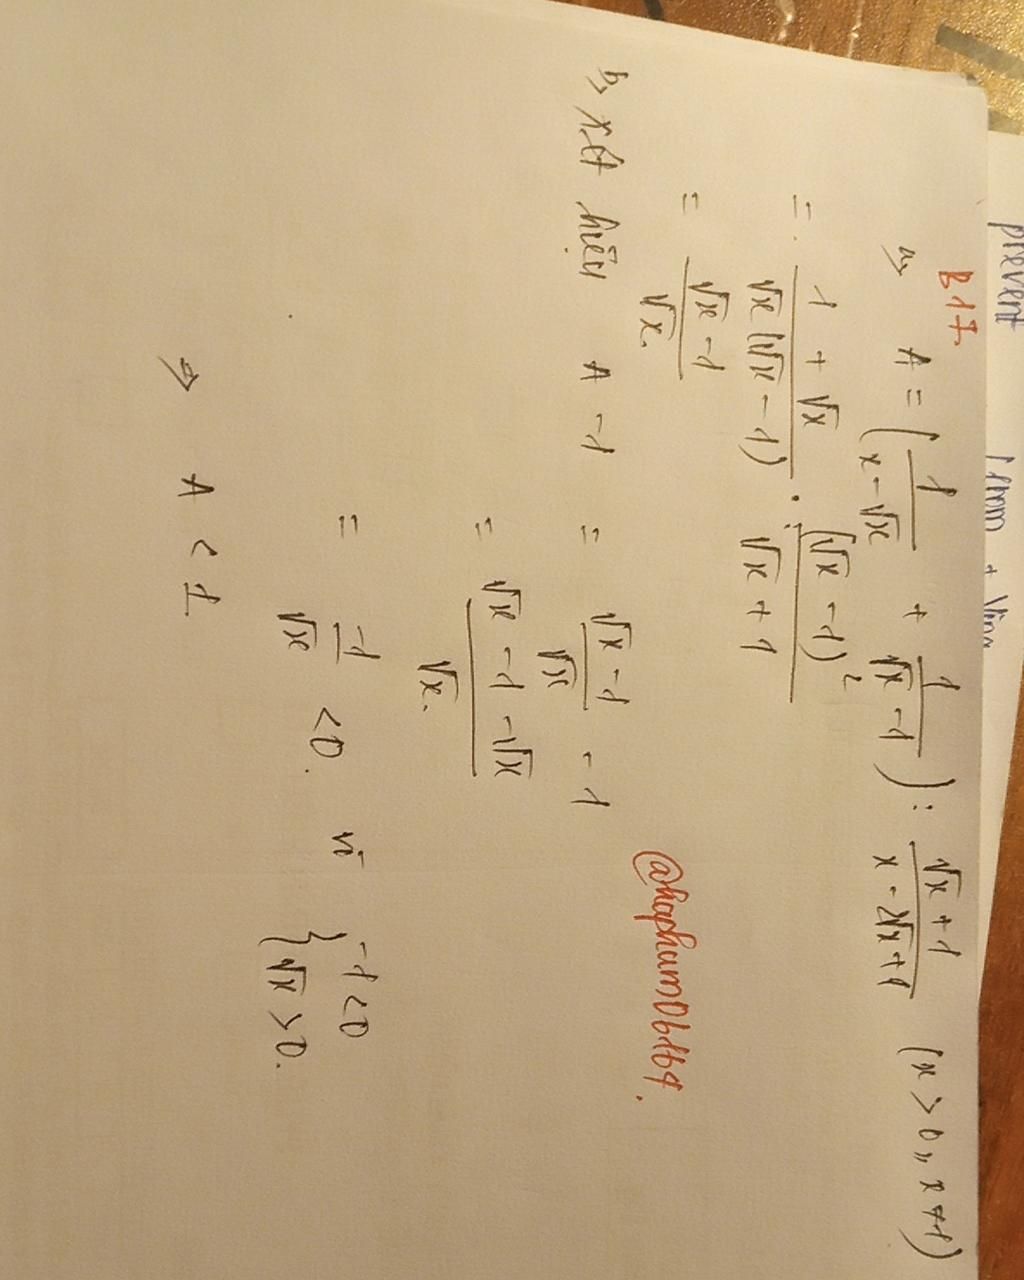 prevent
B17.
a, A = (1/(x-√x) + 1/(√x -1)) : (√x+1)/(x-2√x+1) (x > 0, x ≠ 1)
= (1 + √x)/(√x(√x - 1)) . (√x -1)²/(√x + 1)
= (√x -1)/√x.
@hapham0b1b4.
b, xét hiệu A - 1 = (√x -1)/√x - 1
= (√x -1 -√x)/√x.
= -1/√x < 0. vì { -1 < 0
√x > 0.
⇒ A < 1